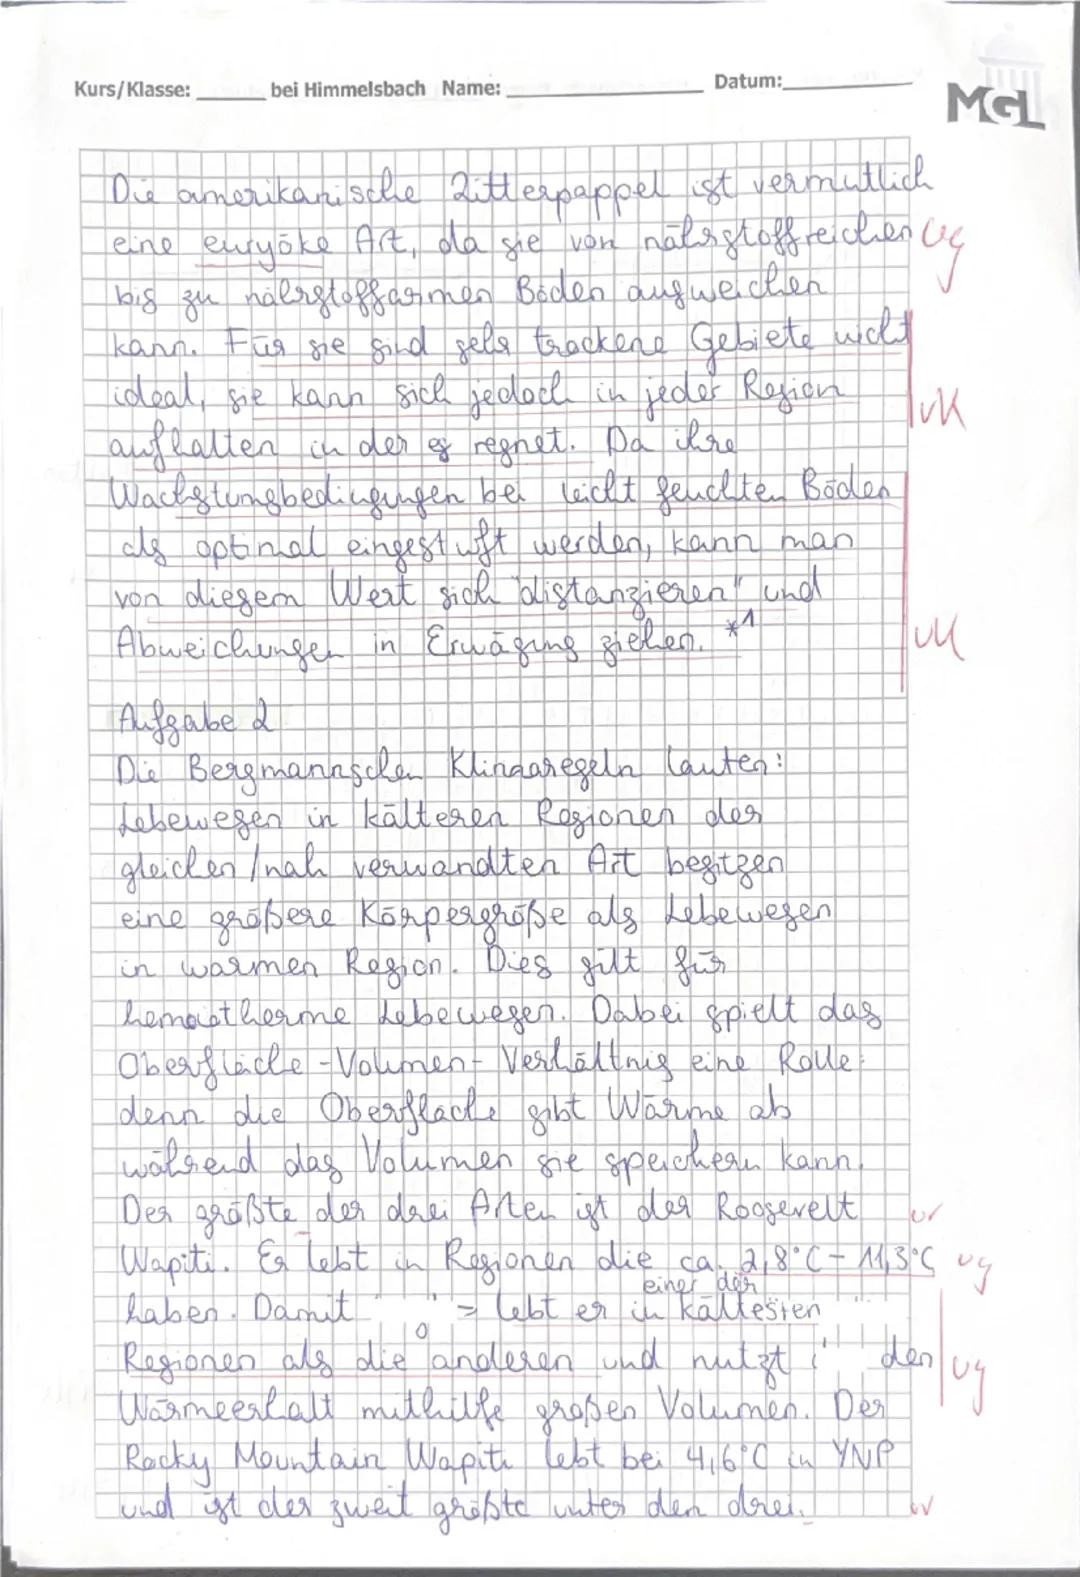 Kurs/Klasse: ______ bei Himmelsbach Name: ______ Datum: ______
MGL
Die amerikanische Zitterpappel ist vermutlich
eine euryöke Art, da sie von nährstoffreichen
bis zu nährstoffarmen Böden ausweichen
kann. Für sie sind sehr trockene Gebiete nicht
ideal, sie kann sich jedoch in jeder Region
aufhalten in der es regnet. Da ihre
Wachstumsbedingungen bei leicht feuchten Böden
als optimal eingestuft werden, kann man
von diesem Wert sich "distanzieren" und
Abweichungen in Erwägung ziehen. *1
Aufgabe 2
Die Bergmannschen Klimaregeln lauten:
Lebewesen in kälteren Regionen der
gleichen/nah verwandten Art besitzen
eine größere Körpergröße als Lebewesen
in warmen Region. Dies gilt für
homoiotherme Lebewesen. Dabei spielt das
Oberfläche-Volumen-Verhältnis eine Rolle:
denn die Oberfläche gibt Wärme ab
während das Volumen sie speichern kann.
Der größte der drei Arten ist der Roosevelt
Wapiti. Er lebt in Regionen die ca. 2,8°C - 11,3°C
einer der
haben. Damit lebt er in kältesten
Regionen als die anderen und nutzt den
Wärmeerhalt mithilfe großen Volumen. Der
Rocky Mountain Wapiti lebt bei 4,6°C in YNP
und ist der zweit größte unter den drei.